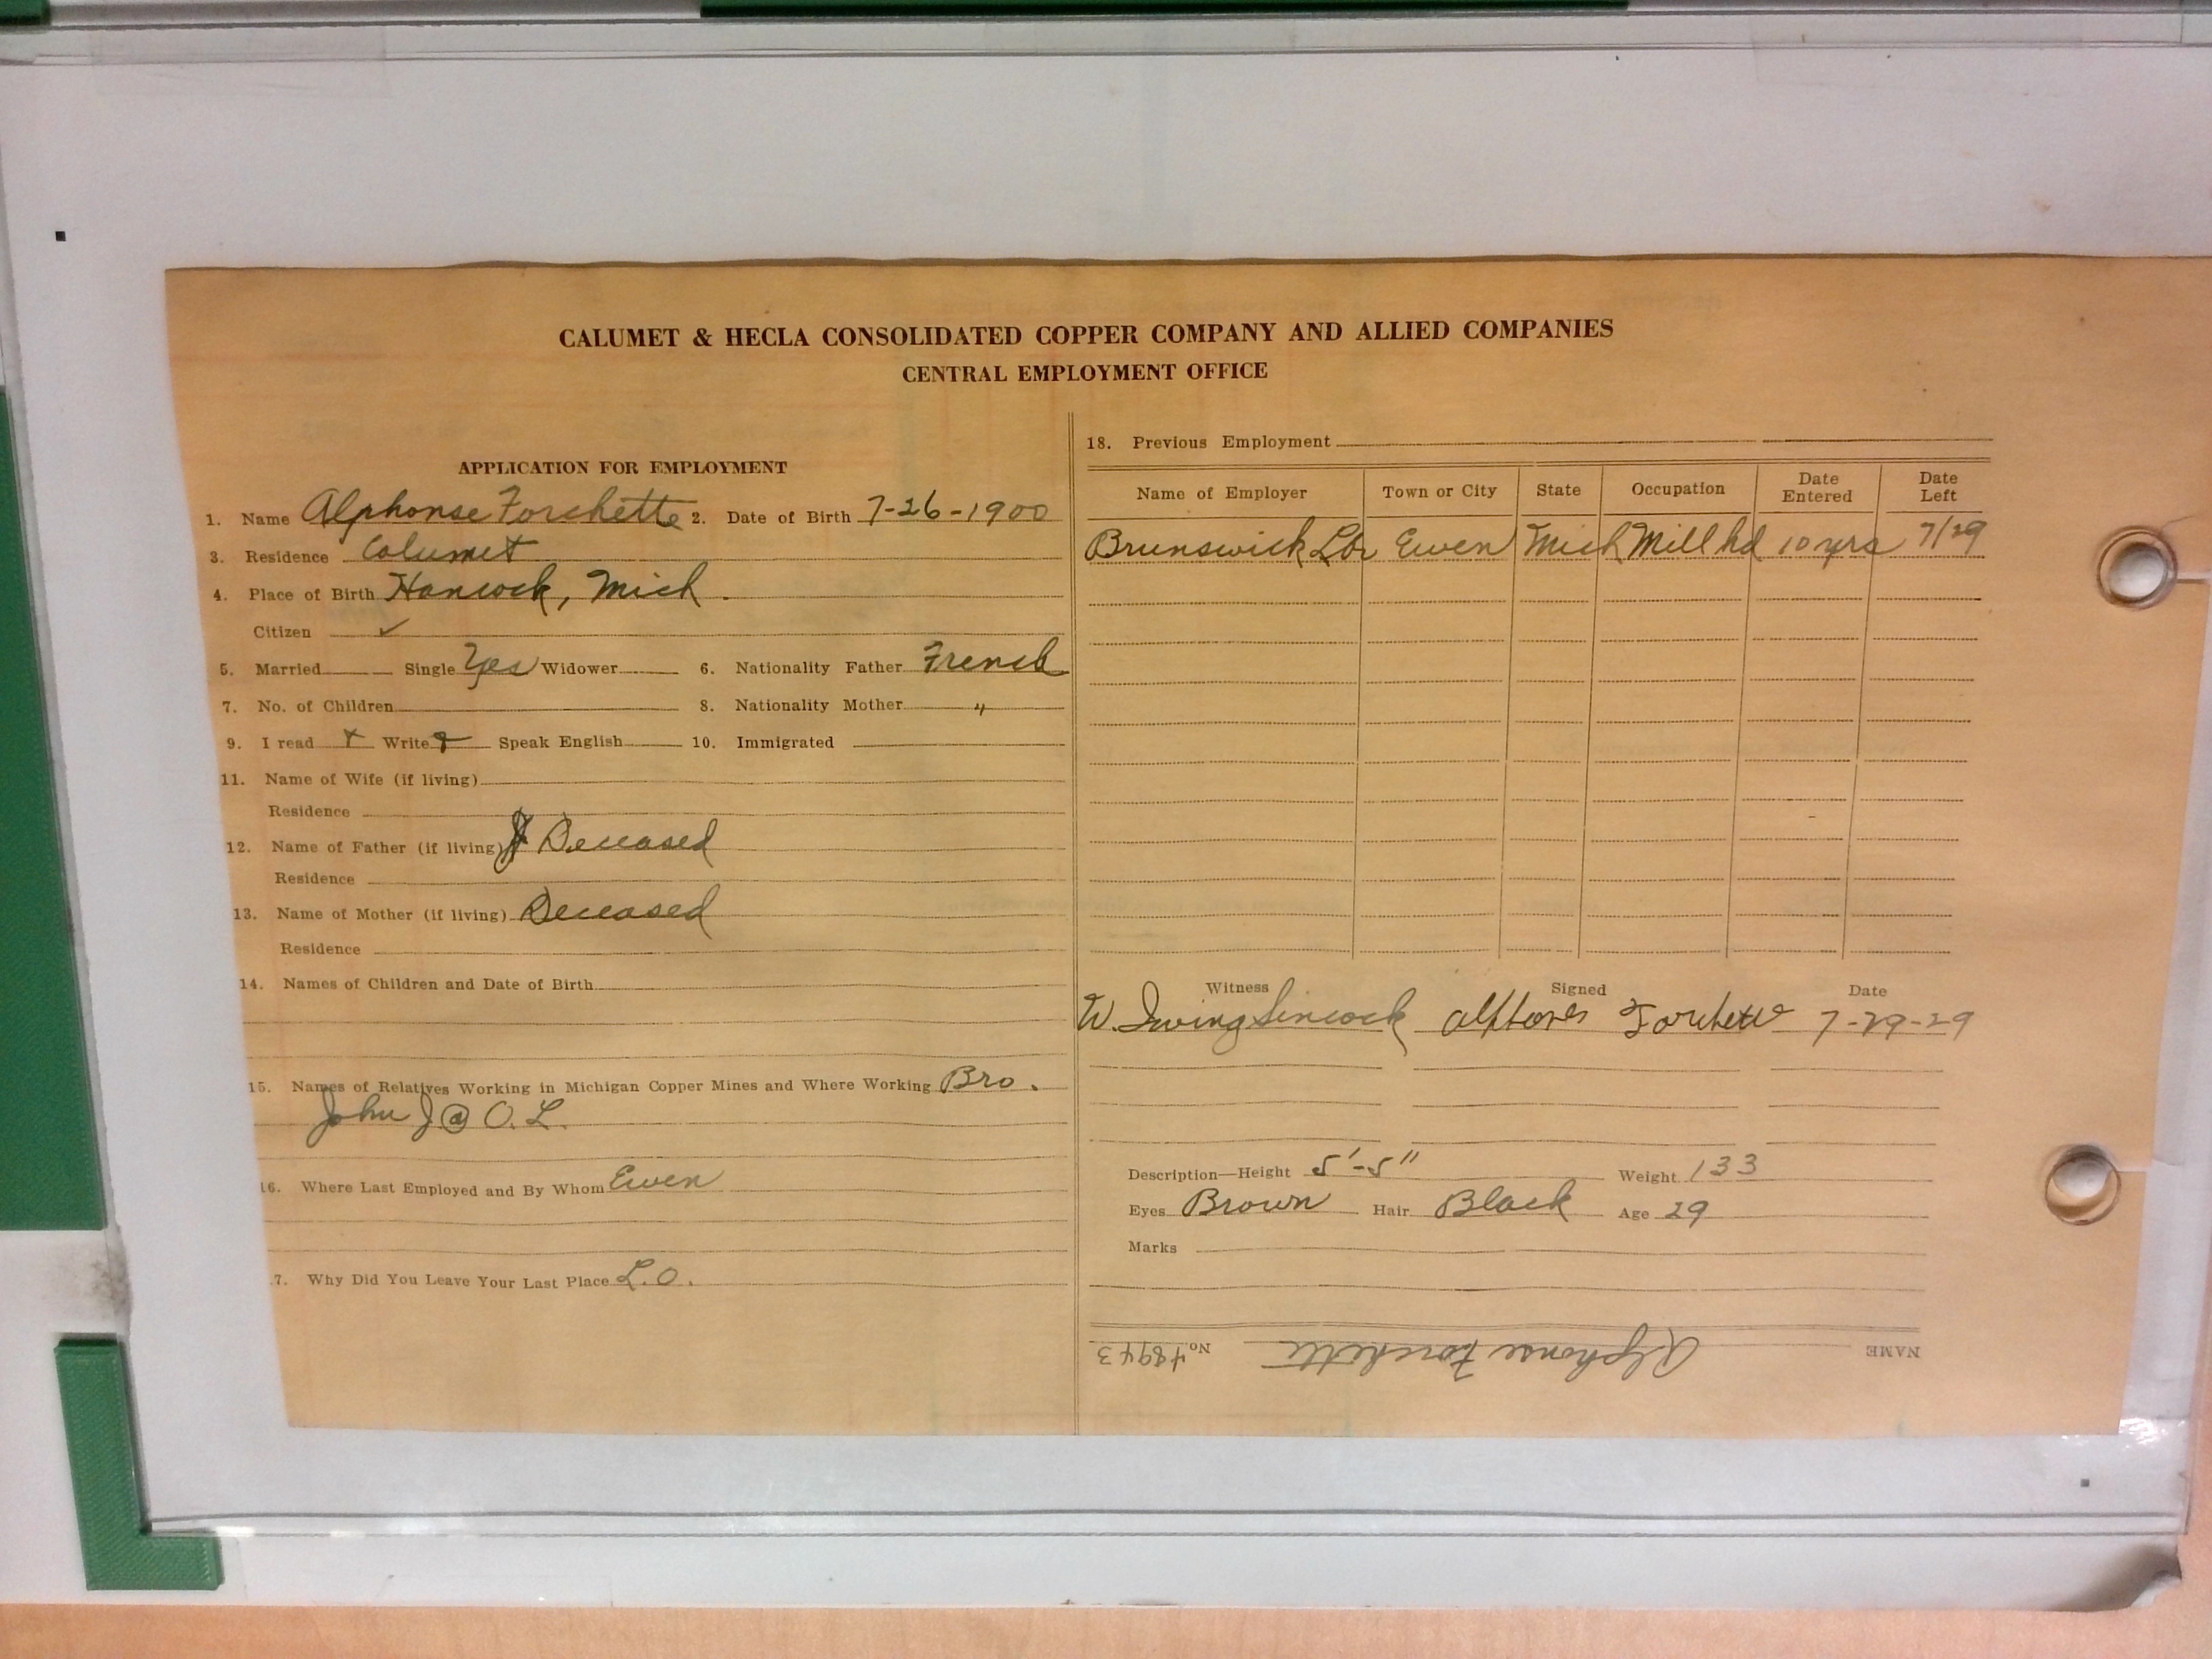 CALUMET & HECLA CONSOLIDATED COPPER COMPANY AND ALLIED COMPANIES
CENTRAL EMPLOYMENT OFFICE
APPLICATION FOR EMPLOYMENT
1. Name Alphonse Forchette 2. Date of Birth 7-26-1900
3. Residence Calumet
4. Place of Birth Hancock, Mich.
Citizen ✓
5. Married Single Yes Widower 6. Nationality Father French
7. No. of Children 8. Nationality Mother "
9. I read Write Speak English 10. Immigrated
11. Name of Wife (if living)
Residence
12. Name of Father (if living) Deceased
Residence
13. Name of Mother (if living) Deceased
Residence
14. Names of Children and Date of Birth
15. Names of Relatives Working in Michigan Copper Mines and Where Working Bro.
John J @ O.L.
16. Where Last Employed and By Whom Ewen
7. Why Did You Leave Your Last Place L.O.
18. Previous Employment
Name of Employer Town or City State Occupation Date Entered Date Left
Brunswick Lbr Ewen Mich Mill hd 10 yrs 7/29
Witness Signed Date
W. Irving Sincock 7-29-29
Description—Height 5'-5" Weight 133
Eyes Brown Hair Black Age 29
Marks
NAME Alphonse Forchette No. 48943